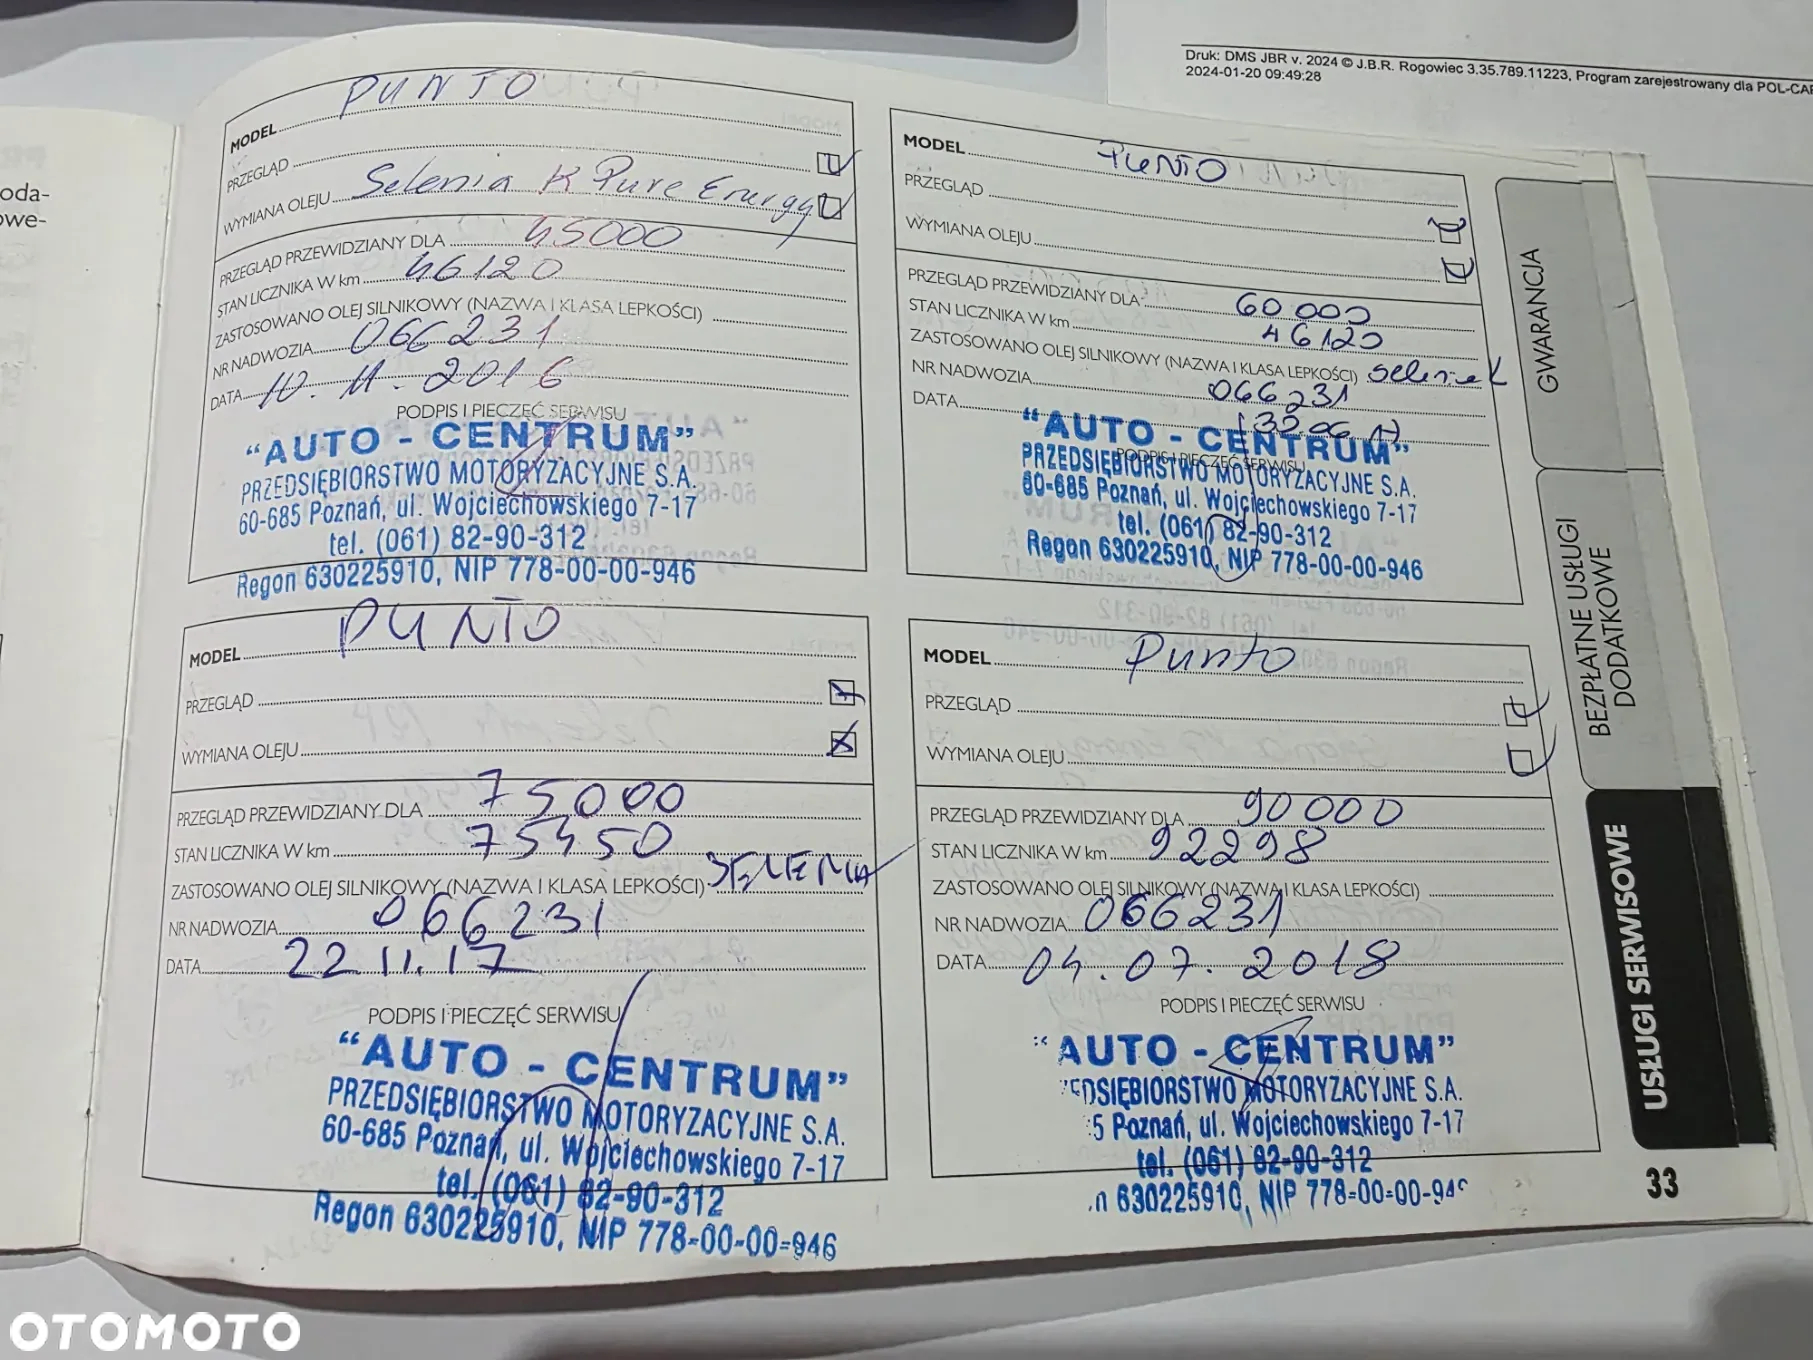 Druk: DMS JBR v. 2024 © J.B.R. Rogowiec 3.35.789.11223, Program zarejestrowany dla POL-CAR
2024-01-20 09:49:28
oda-
owe-
MODEL PUNTO
PRZEGLĄD
WYMIANA OLEJU Selenia K Pure Energy
PRZEGLĄD PRZEWIDZIANY DLA 45000
STAN LICZNIKA W km 46120
ZASTOSOWANO OLEJ SILNIKOWY (NAZWA I KLASA LEPKOŚCI)
NR NADWOZIA 066231
DATA 10.11.2016
PODPIS I PIECZĘĆ SERWISU
“AUTO - CENTRUM”
PRZEDSIĘBIORSTWO MOTORYZACYJNE S.A.
60-685 Poznań, ul. Wojciechowskiego 7-17
tel. (061) 82-90-312
Regon 630225910, NIP 778-00-00-946
MODEL PUNTO
PRZEGLĄD
WYMIANA OLEJU
PRZEGLĄD PRZEWIDZIANY DLA 60000
STAN LICZNIKA W km 46120
ZASTOSOWANO OLEJ SILNIKOWY (NAZWA I KLASA LEPKOŚCI)
NR NADWOZIA 066231
DATA
PODPIS I PIECZĘĆ SERWISU
“AUTO - CENTRUM”
PRZEDSIĘBIORSTWO MOTORYZACYJNE S.A.
60-685 Poznań, ul. Wojciechowskiego 7-17
tel. (061) 82-90-312
Regon 630225910, NIP 778-00-00-946
MODEL PUNTO
PRZEGLĄD
WYMIANA OLEJU
PRZEGLĄD PRZEWIDZIANY DLA 75000
STAN LICZNIKA W km 75450
ZASTOSOWANO OLEJ SILNIKOWY (NAZWA I KLASA LEPKOŚCI) SELENIA
NR NADWOZIA 066231
DATA 22.11.17
PODPIS I PIECZĘĆ SERWISU
“AUTO - CENTRUM”
PRZEDSIĘBIORSTWO MOTORYZACYJNE S.A.
60-685 Poznań, ul. Wojciechowskiego 7-17
tel. (061) 82-90-312
Regon 630225910, NIP 778-00-00-946
MODEL Punto
PRZEGLĄD
WYMIANA OLEJU
PRZEGLĄD PRZEWIDZIANY DLA 90000
STAN LICZNIKA W km 92298
ZASTOSOWANO OLEJ SILNIKOWY (NAZWA I KLASA LEPKOŚCI)
NR NADWOZIA 066231
DATA 04.07.2018
PODPIS I PIECZĘĆ SERWISU
AUTO - CENTRUM”
EDSIĘBIORSTWO MOTORYZACYJNE S.A.
5 Poznań, ul. Wojciechowskiego 7-17
tel. (061) 82-90-312
n 630225910, NIP 778-00-00-946
GWARANCJA
BEZPŁATNE USŁUGI
DODATKOWE
USŁUGI SERWISOWE
33
OTOMOTO